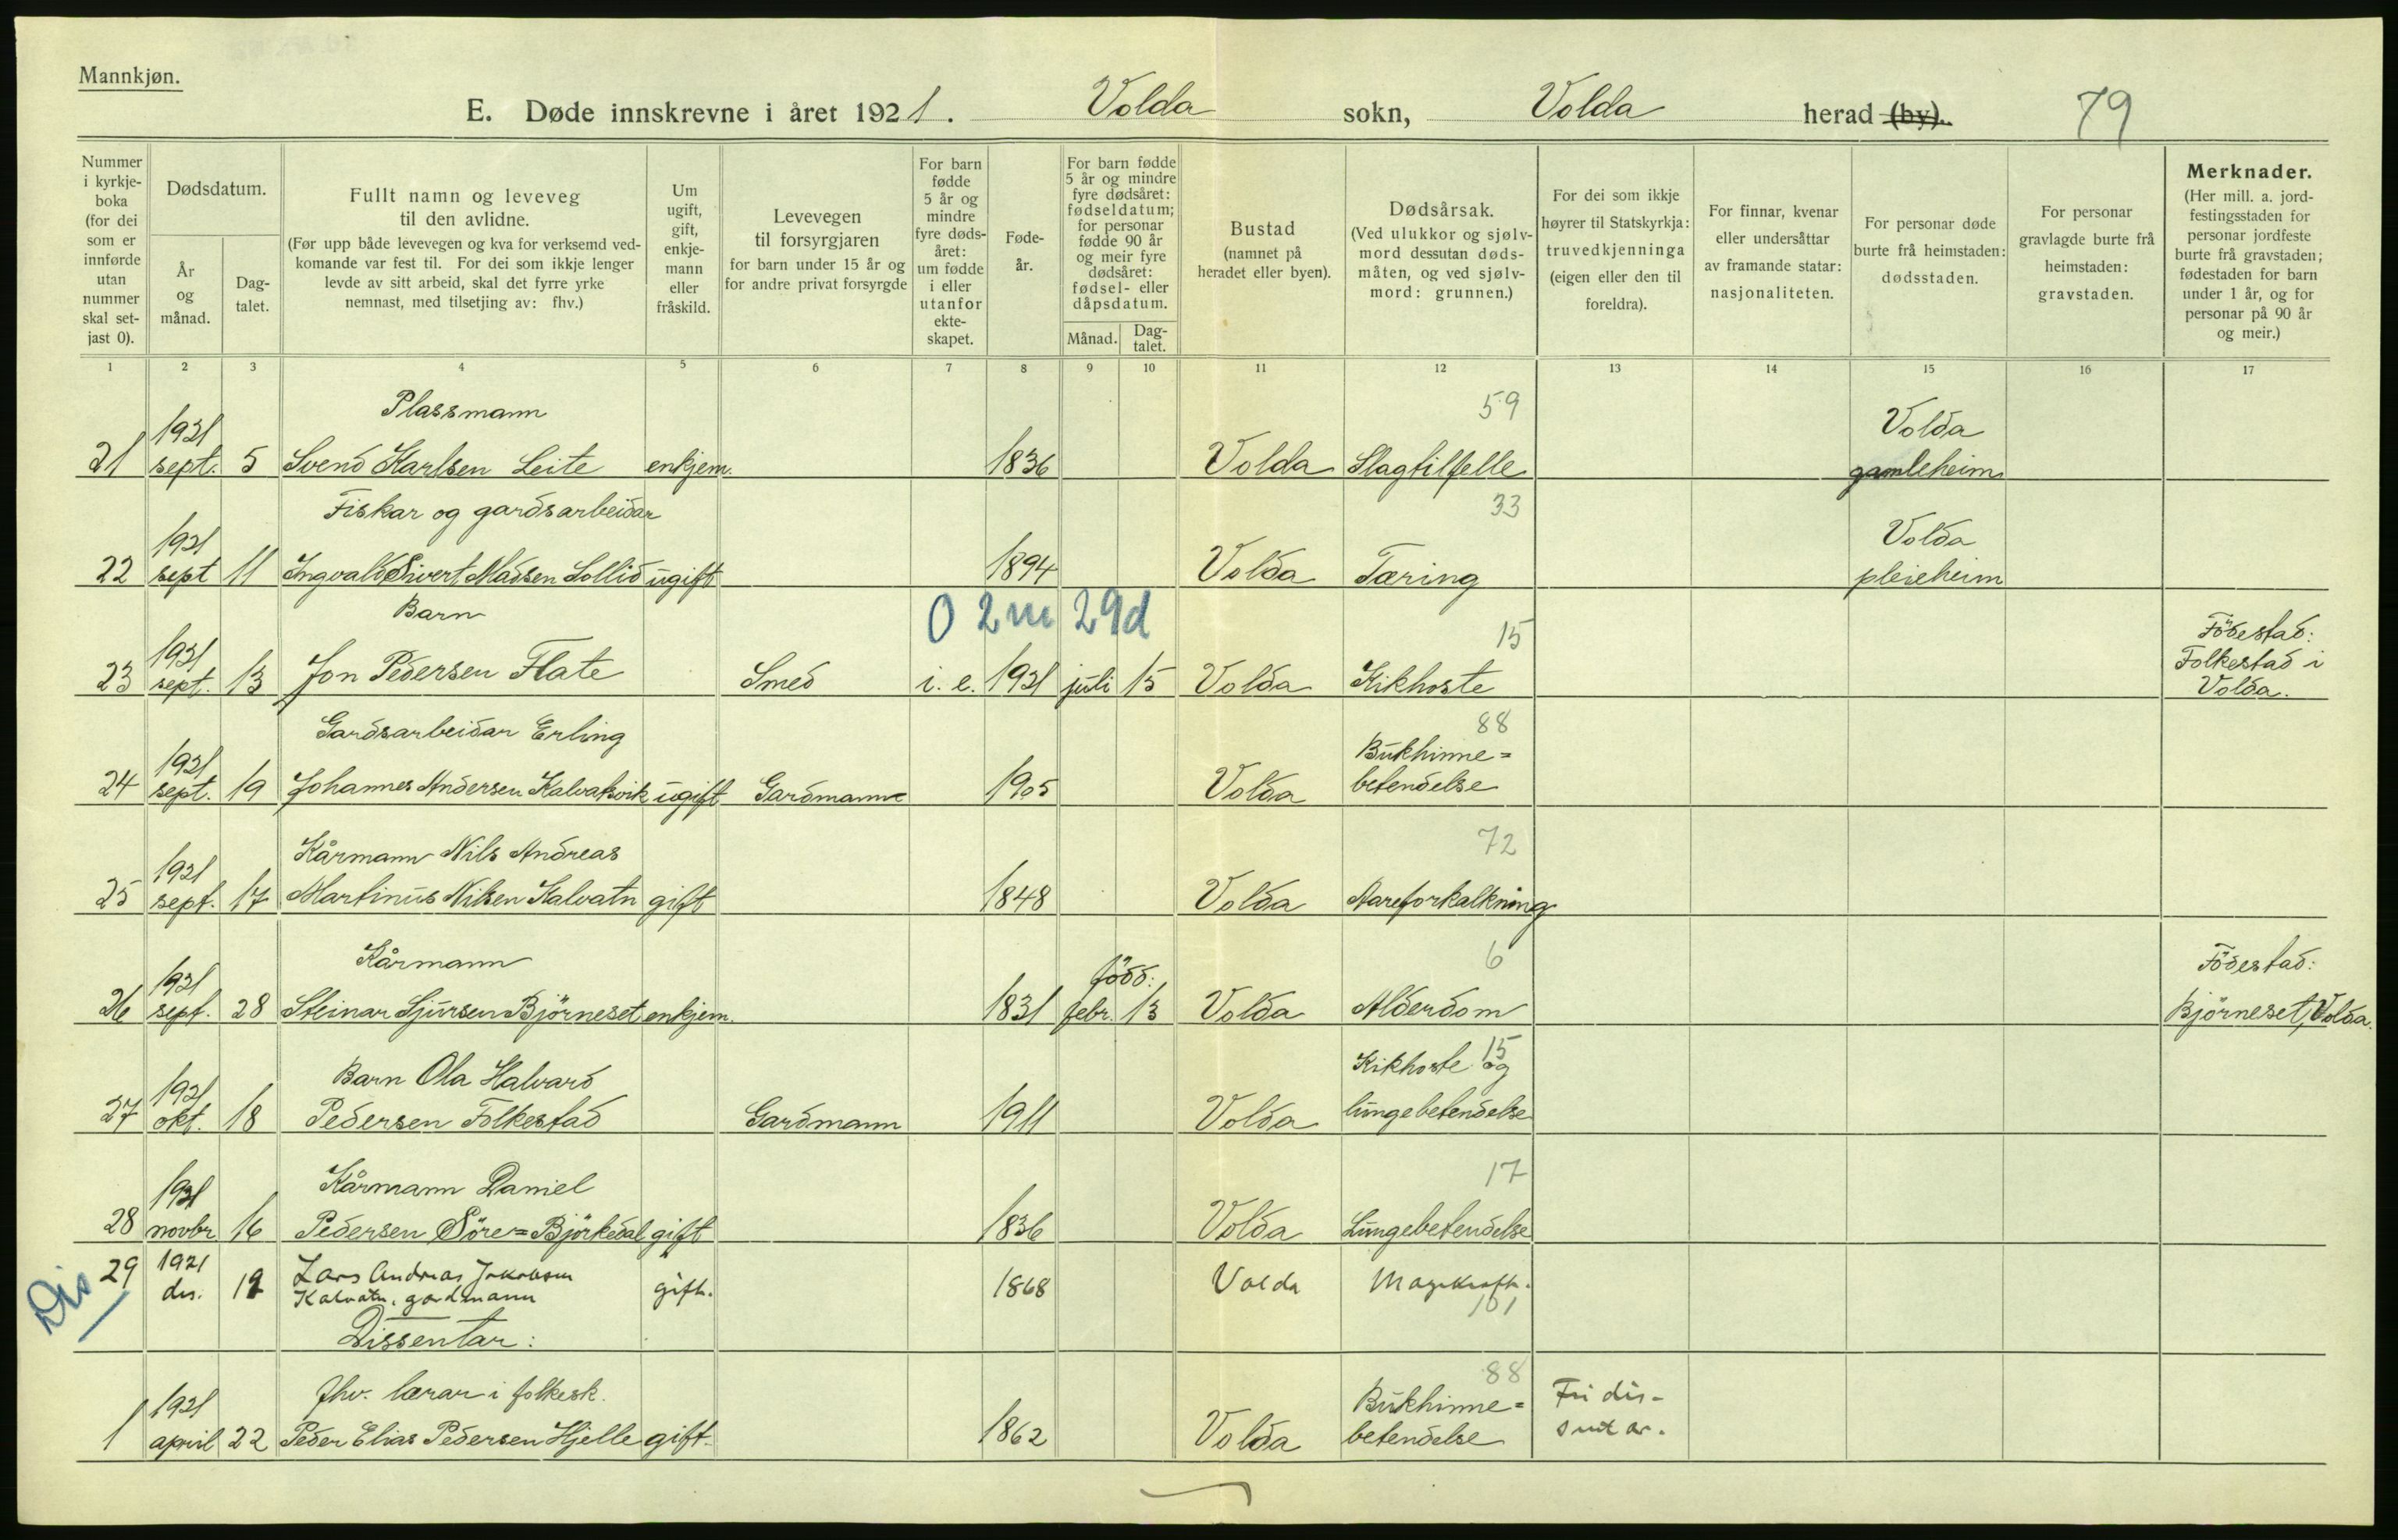 Mannkjøn.
E. Døde innskrevne i året 1921. Volda sokn, Volda herad (by). 79
Nummer i kyrkje- boka (for dei som er innførde utan nummer skal set- jast 0).
Dødsdatum.
År og månad.
Dag- talet.
Fullt namn og leveveg til den avlidne.
(Før upp både levevegen og kva for verksemd ved- komande var fest til. For dei som ikkje lenger levde av sitt arbeid, skal det fyrre yrke nemnast, med tilsetjing av: fhv.)
Um ugift, gift, enkje- mann eller fråskild.
Levevegen til forsyrgjaren for barn under 15 år og for andre privat forsyrgde
For barn fødde 5 år og mindre fyre døds- året: um fødde i eller utanfor ekte- skapet.
Føde- år.
For barn fødde 5 år og mindre fyre dødsåret: fødseldatum; for personar fødde 90 år og meir fyre dødsåret: fødsel- eller dåpsdatum.
Månad. Dag- talet.
Bustad (namnet på heradet eller byen).
Dødsårsak. (Ved ulukkor og sjølv- mord dessutan døds- måten, og ved sjølv- mord: grunnen.)
For dei som ikkje høyrer til Statskyrkja: truvedkjenninga (eigen eller den til foreldra).
For finnar, kvenar eller undersåttar av framande statar: nasjonaliteten.
For personar døde burte frå heimstaden: dødsstaden.
For personar gravlagde burte frå heimstaden: gravstaden.
Merknader. (Her mill. a. jord- festingsstaden for personar jordfeste burte frå gravstaden; fødestaden for barn under 1 år, og for personar på 90 år og meir.)
1 2 3 4 5 6 7 8 9 10 11 12 13 14 15 16 17
Plassmann 59
1921 Volda
21 sept. 5 Svend Karlsen Leite enkjem. 1836 Volda Slagtilfelle gamleheim
Fiskar og gardsarbeidar 33
1921 Volda
22 sept 11 Ingvald Sivert Madsen Sollid ugift 1894 Volda Tæring pleieheim
Barn 0 2m 29d
1921 15 Födestad:
Folkestad i
23 sept. 13 Jon Pedersen Flate Smed i. e. 1921 juli 15 Volda Kikhoste Volda.
Gardsarbeidar Erling 88
1921 Bukhinne=
24 sept. 19 Johannes Andersen Kalvatsvik ugift Gardmann 1905 Volda betendelse
Kårmann Nils Andreas 72
1921
25 sept. 17 Martinus Nilsen Kalvatn gift 1848 Volda Aareforkalkning
Kårmann 6 Födestad:
1921 född:
26 sept. 28 Steinar Sjursen Björneset enkjem. 1831 febr. 13 Volda Alderdom Björneset, Volda.
Barn Ola Halvard Kikhoste og 15
1921
27 okt. 18 Pedersen Folkestad Gardmann 1911 Volda lungebetendelse
Kårmann Daniel 17
1921
28 novbr 16 Pedersen Söre=Björkedal gift 1836 Volda Lungebetendelse
Dis 29 1921 Lars Andreas Jakobsen
des. 19 Kalvatn, gardmann gift. 1868 Volda Magekræft.
101
Dissentar:
fhv. lærar i folkesk. 88
1921 Bukhinne= Fri dis-
1 april 22 Peder Elias Pedersen Hjelle gift. 1862 Volda betendelse sentar.